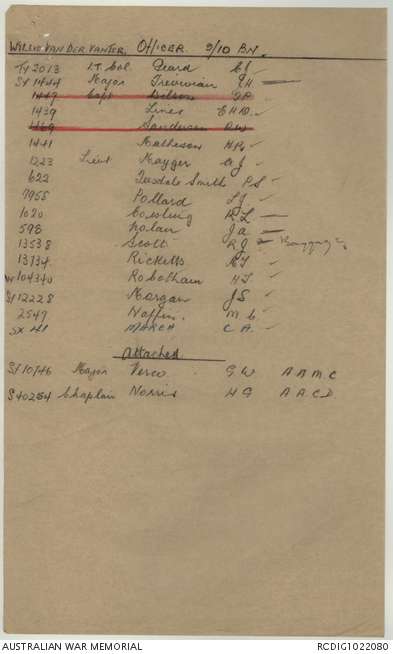 WILLIS VAN DER VANTER. OFFICER 2/10 BN.
TX2013 Lt. Col. Geard CJ
SX1444 Major Trevivian
1447 Capt
1439 Lines EHD.
Sanderson RW
1441 Matheson HR
1223 Lieut Mayger AJ
622 Tisdale Smith PS
7955 Pollard LJ
1020 Goesling RL
598 Nolan JA
13538 Scott RJ
13734 Ricketts
104340 Robotham HJ
SX12228 Morgan JS
2547 Naffin. MC
SX 41 MARCH C A.
Attached
SX10746 Major Verco GW A A M C
S40254 Chaplain Norris HG A A C D
AUSTRALIAN WAR MEMORIAL RCDIG1022080